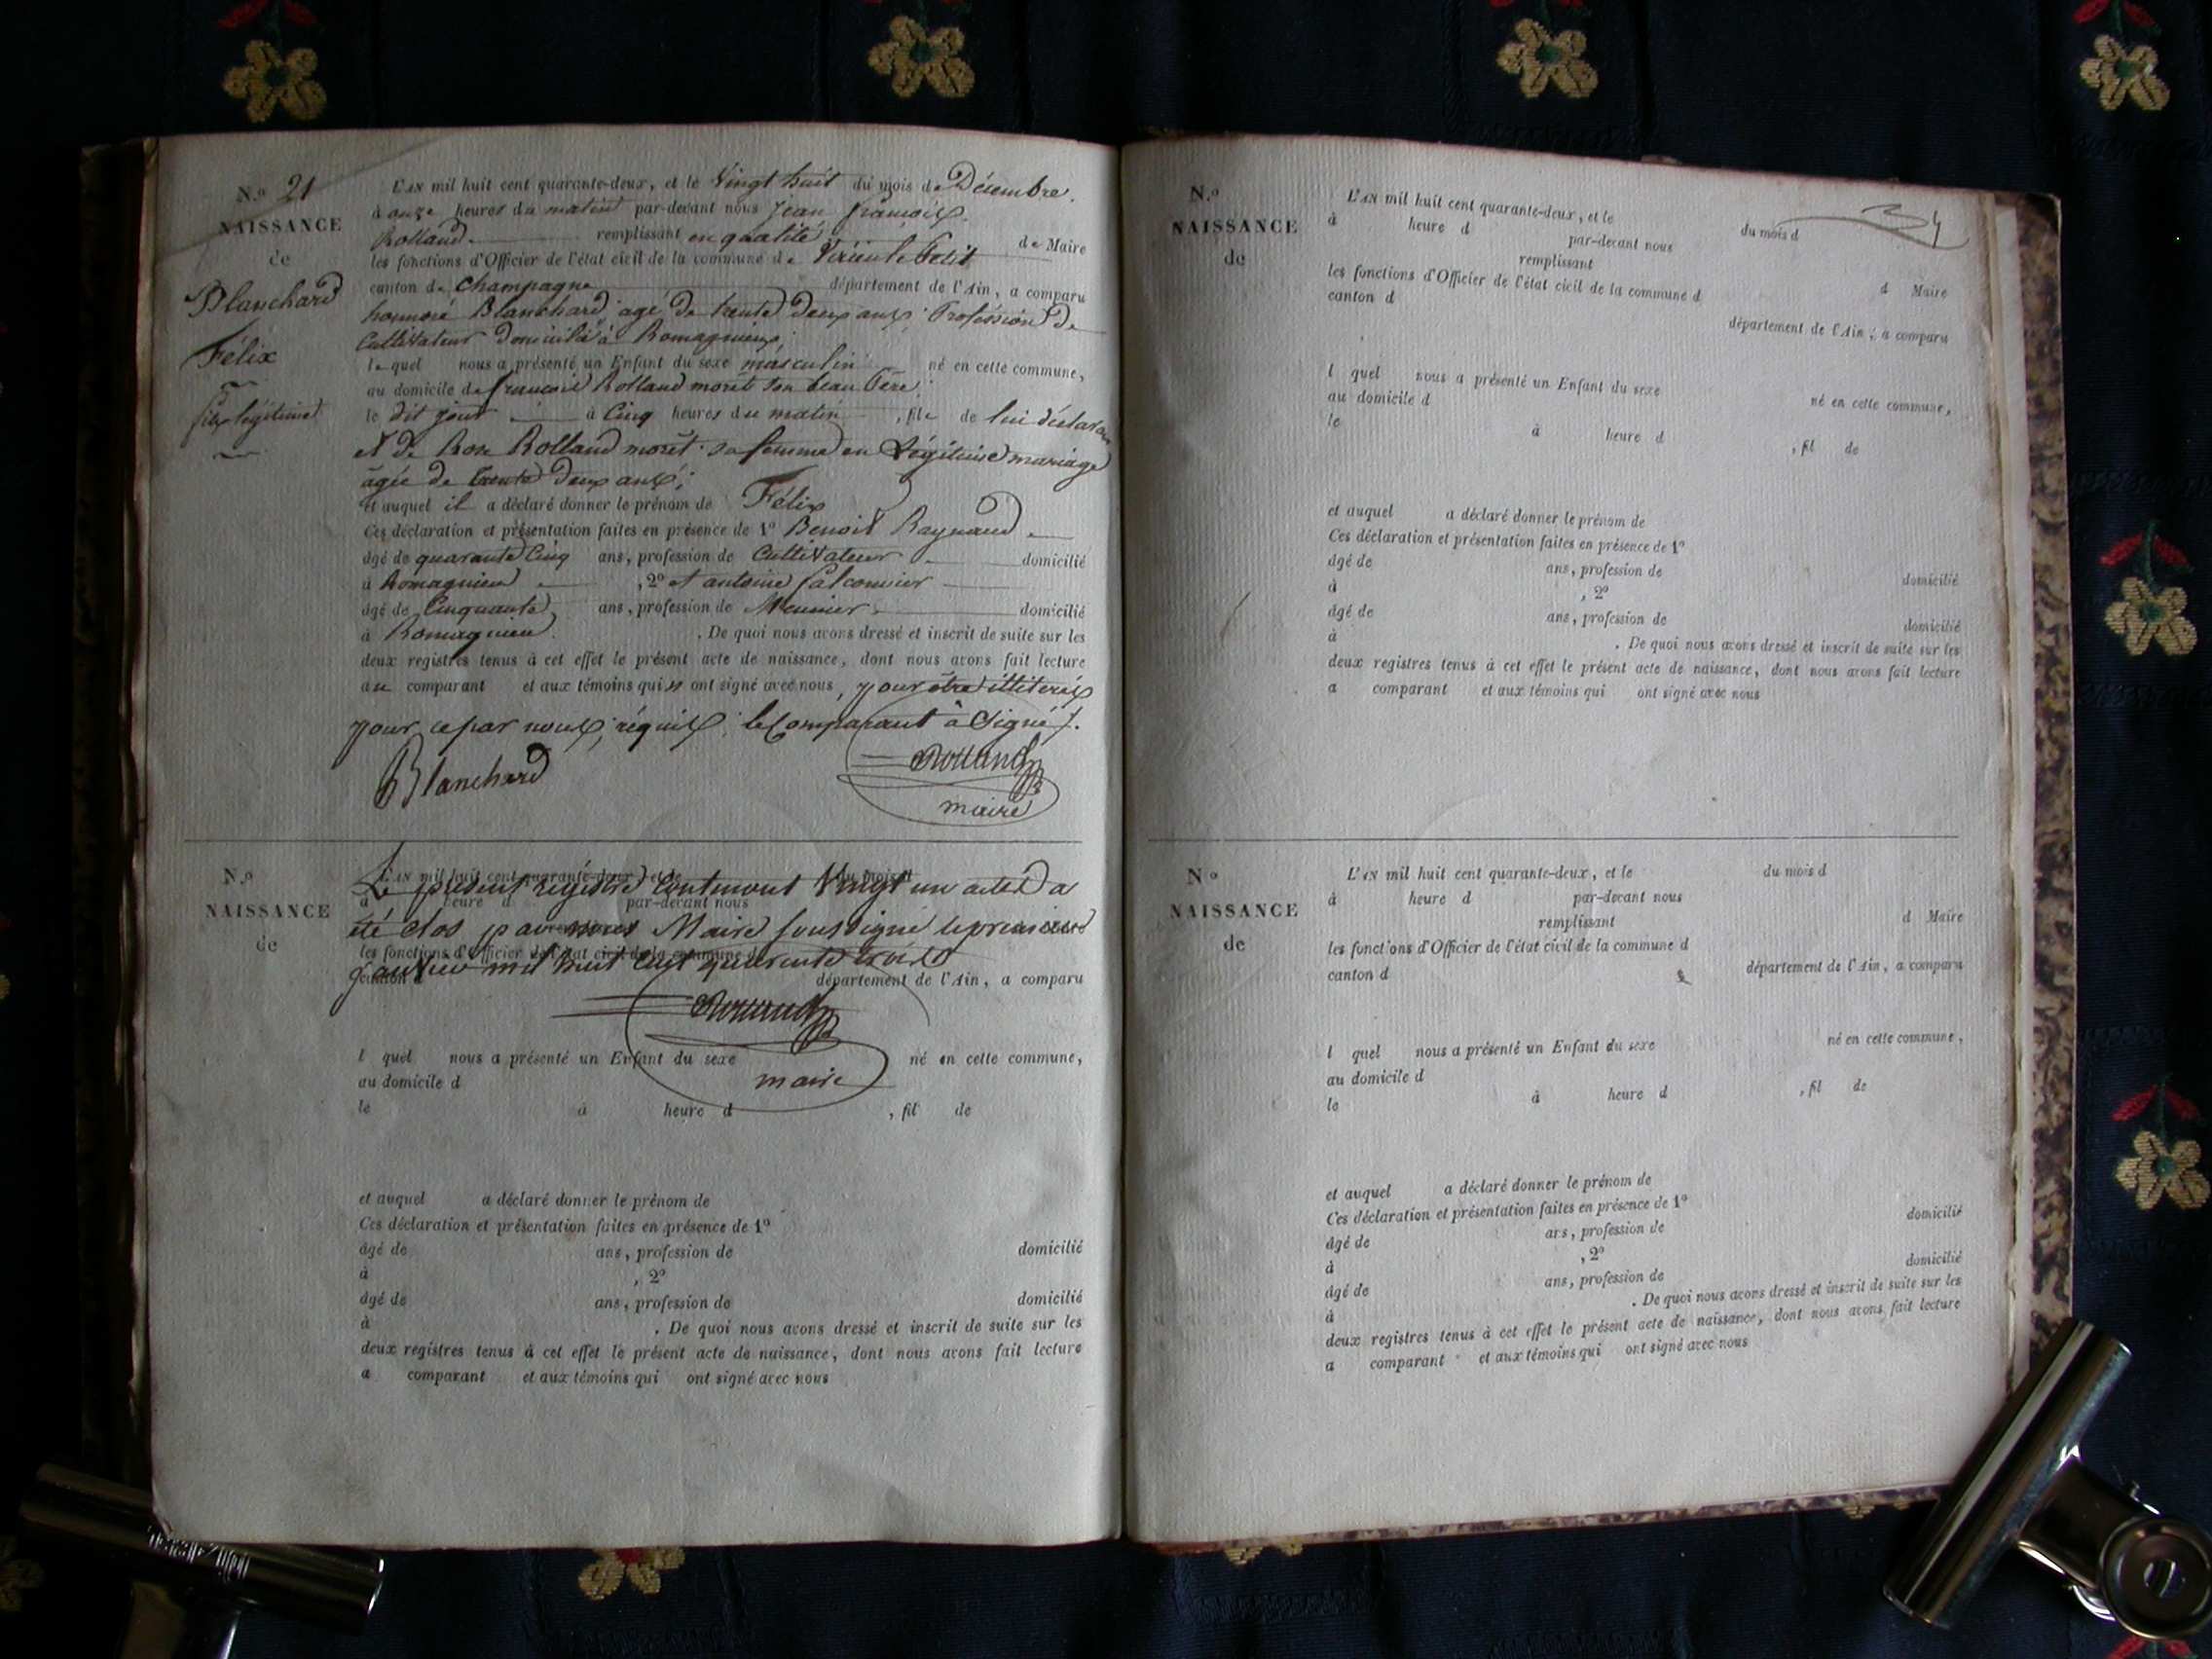 N.o 21
NAISSANCE
de
Blanchard
Félix
fils légitime
L'AN mil huit cent quarante-deux, et le Vingt huit du mois de Décembre.
à onze heures du matin par-devant nous Jean françois
Rolland remplissant en qualité de Maire
les fonctions d'Officier de l'état civil de la commune de Virieu le Petit
canton de Champagne département de l'Ain, a comparu
honnoré Blanchard agé de trente deux ans, Profession de
Cultivateur domicilié à Romagnieu,
lequel nous a présenté un Enfant du sexe masculin né en cette commune,
au domicile de françois Rolland moret son beau Père,
le dit jour à Cinq heures du matin, fils de lui déclarant
et de Rolland moret sa femme en Légitime mariage
âgée de trente deux ans;
et auquel il a déclaré donner le prénom de Félix
Ces déclaration et présentation faites en présence de 1o Benoit Raynaud
âgé de quarante Cinq ans, profession de Cultivateur domicilié
à Romagnieu, 2o et antoine falconnier
âgé de Cinquante ans, profession de Meunier domicilié
à Romagnieu. De quoi nous avons dressé et inscrit de suite sur les
deux registres tenus à cet effet le présent acte de naissance, dont nous avons fait lecture
au comparant et aux témoins qui n ont signé avec nous, pour être
pour ce par nous, réquis, le Comparant à Signé.
Blanchard
Rolland
maire
N.o
NAISSANCE
de
L'AN mil huit cent quarante-deux, et le du mois d
Le présent registre Contenant Vingt un actes a
à heure d par-devant nous
été clos par nous Maire soussigné le premier
les fonctions d'Officier de l'état civil de la commune d
janvier mil huit cent quarante trois
canton d département de l'Ain, a comparu
Rolland
l quel nous a présenté un Enfant du sexe né en cette commune,
au domicile d
maire
le à heure d , fil de
et auquel a déclaré donner le prénom de
Ces déclaration et présentation faites en présence de 1o
âgé de ans, profession de domicilié
à , 2o
âgé de ans, profession de domicilié
à . De quoi nous avons dressé et inscrit de suite sur les
deux registres tenus à cet effet le présent acte de naissance, dont nous avons fait lecture
a comparant et aux témoins qui ont signé avec nous
N.o
NAISSANCE
de
L'AN mil huit cent quarante-deux, et le du mois d
à heure d par-devant nous
remplissant d Maire
les fonctions d'Officier de l'état civil de la commune d
canton d département de l'Ain, a comparu
l quel nous a présenté un Enfant du sexe né en cette commune,
au domicile d
le à heure d , fil de
et auquel a déclaré donner le prénom de
Ces déclaration et présentation faites en présence de 1o
âgé de ans, profession de domicilié
à , 2o
âgé de ans, profession de domicilié
à . De quoi nous avons dressé et inscrit de suite sur les
deux registres tenus à cet effet le présent acte de naissance, dont nous avons fait lecture
a comparant et aux témoins qui ont signé avec nous
N.o
NAISSANCE
de
L'AN mil huit cent quarante-deux, et le du mois d
à heure d par-devant nous
remplissant d Maire
les fonctions d'Officier de l'état civil de la commune d
canton d département de l'Ain, a comparu
l quel nous a présenté un Enfant du sexe né en cette commune,
au domicile d
le à heure d , fil de
et auquel a déclaré donner le prénom de
Ces déclaration et présentation faites en présence de 1o
âgé de ans, profession de domicilié
à , 2o
âgé de ans, profession de domicilié
à . De quoi nous avons dressé et inscrit de suite sur les
deux registres tenus à cet effet le présent acte de naissance, dont nous avons fait lecture
a comparant et aux témoins qui ont signé avec nous